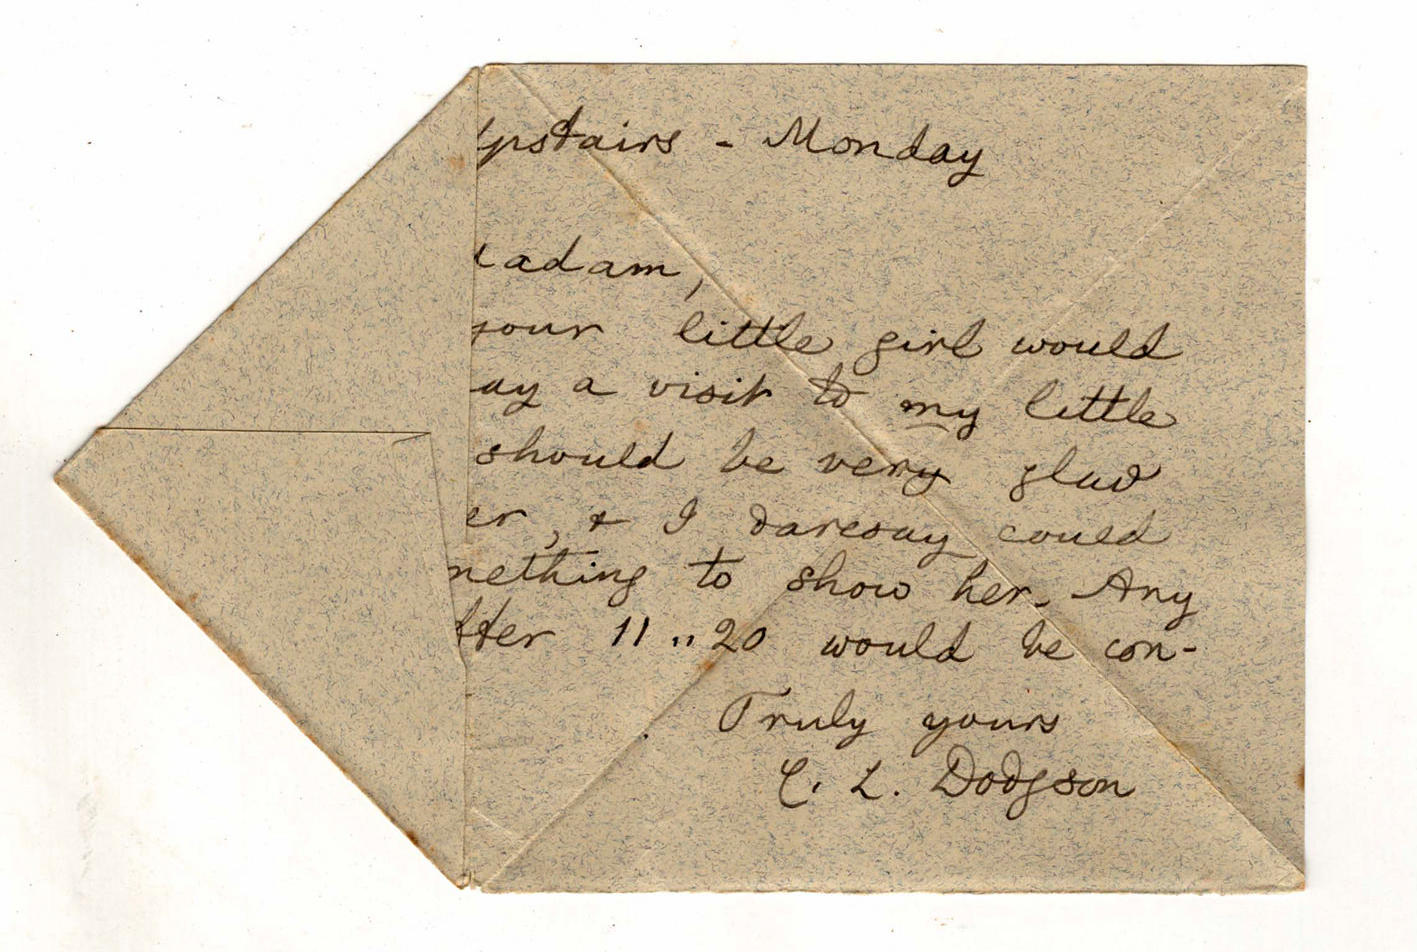 Upstairs - Monday
adam,
your little girl would
ay a visit to my little
should be very glad
er, & I daresay could
mething to show her. Any
fter 11..20 would be con-
Truly yours
C. L. Dodgson